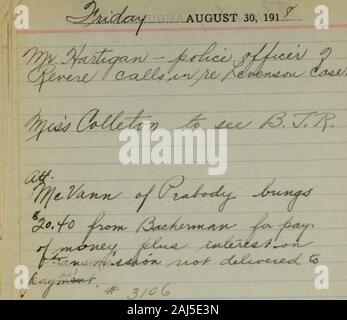 Friday AUGUST 30, 1918
Mr. Hartigan - police officer of
Revere calls in/re Levenson Case.
Miss Colleton to see B. J. R.
Att.
McVann of Peabody brings
$20.40 from Bacherman for pay.
of money plus interest on
transmission not delivered to
# 3106
alamy
www.alamy.com
2AJ5E3N